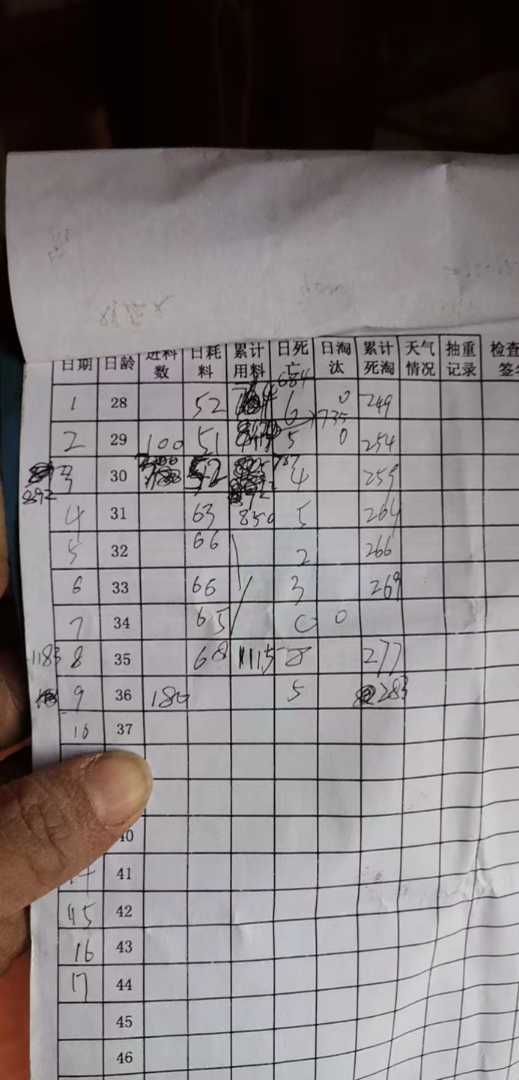 日期 日龄 进料数 日耗料 累计用料 日死亡 日淘汰 累计死淘 天气情况 抽重记录 检查签名
684
1 28 52 6 0 249
735
2 29 100 51 5 0 254
787
3 30 52 4 259
892
4 31 63 850 5 264
5 32 66 2 266
6 33 66 3 269
7 34 65 0 0
1183 8 35 68 1115 8 277
9 36 180 5 283
10 37
40
41
15 42
16 43
17 44
45
46